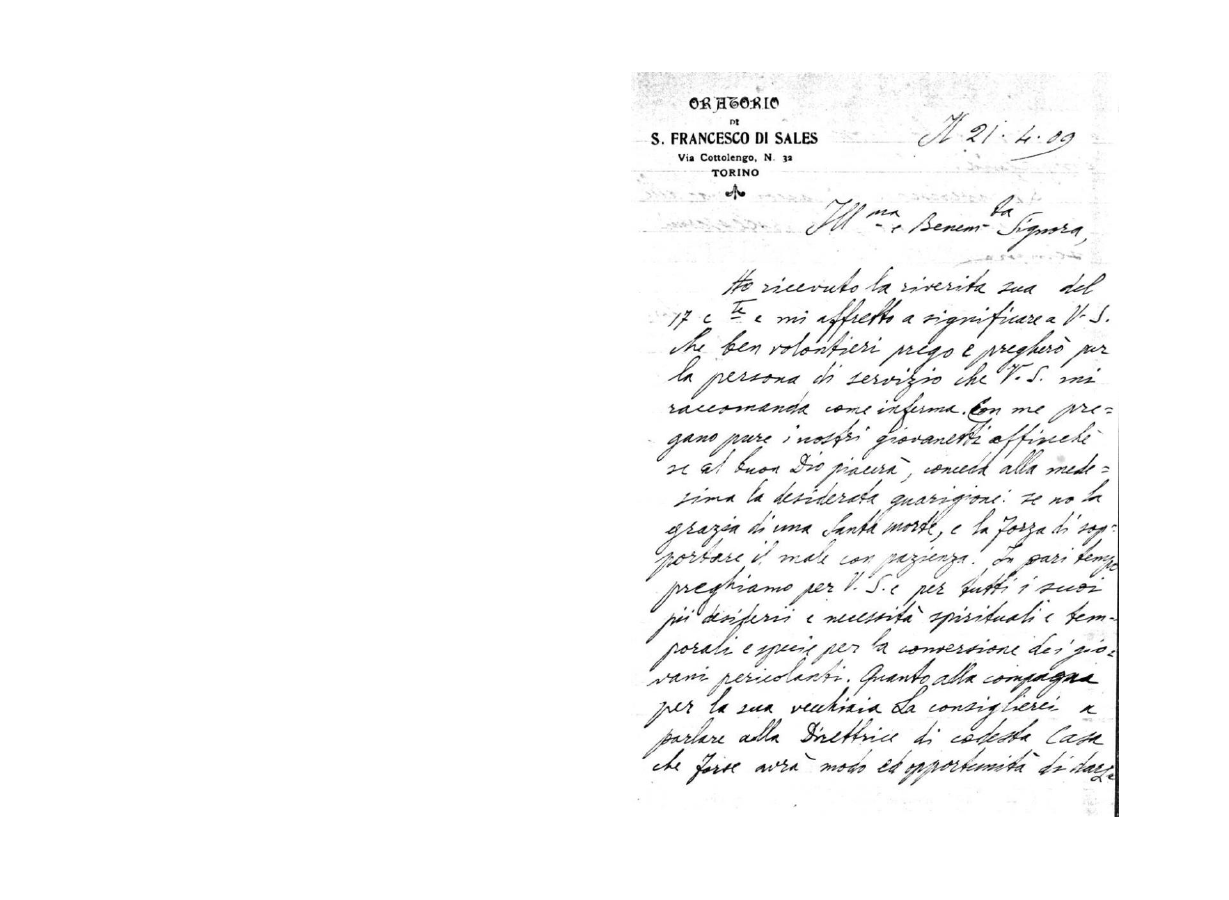 ORATORIO
DI
S. FRANCESCO DI SALES
Via Cottolengo, N. 32
TORINO
Il 21. 4. 09
Ill ma e Benem ta Signora,
Ho ricevuto la riverita sua del
17 c te e mi affretto a significare a V. S.
che ben volontieri prego e pregherò per
la persona di servizio che V. S. mi
raccomanda come inferma. Con me pre=
gano pure i nostri giovanetti affinchè
se al buon Dio piacerà, conceda alla mede=
sima la desiderata guarigione: se no la
grazia di una Santa morte, e la forza di sop=
portare il male con pazienza. In pari tempo
preghiamo per V. S. e per tutti i suoi
pii desiderii e necessità spirituali e tem-
porali e specie per la conversione dei gio=
vani pericolanti. Quanto alla compagna
per la sua vecchiaia La consiglierei a
parlare alla Direttrice di codesta Casa
che forse avrà modo ed opportunità di darLe